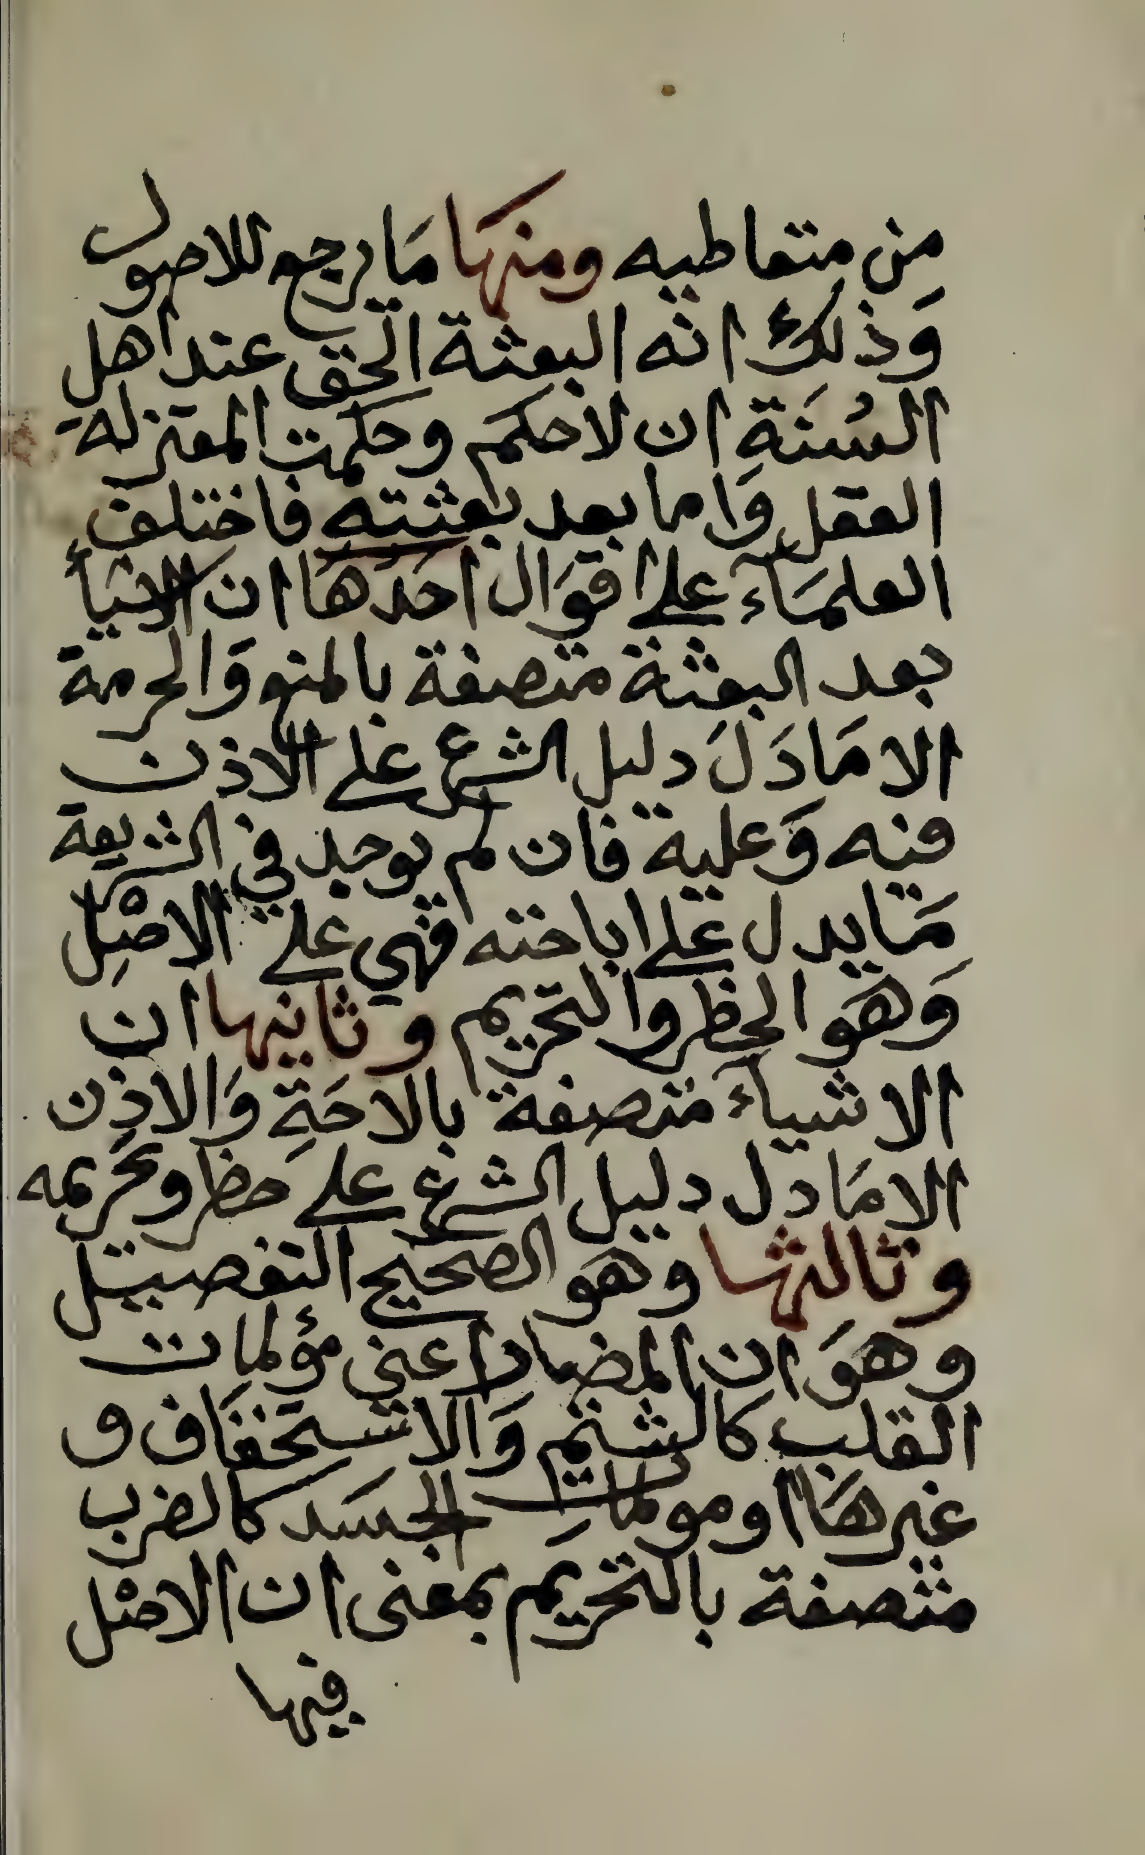 من متعاطيه ومنها مَا يرجع للاصول
وَذلك انه البعثة الحق عند اهل
السُنَةِ ان لا حكمَ وحكمت المعتزلة
العقل وَاما بعد بعثته فاختلف
العلمَآء على اقوَال احَدُهَا ان الاشيآء
بعد البعثة متصفة بالمنع وَالحرمة
الا مَا دَلَ دليل الشرع على الاذن
فيه وَعليه فان لم يوجد في الشريعة
مَا يدل على اباحته فهي على الاصْل
وَهوَ الحظر والتحريم وثانيها ان
الاشيآء متصفة بالاحَةِ وَالاذن
الا مَا دل دليل الشرع على حظر وتحريمه
وثالثها وهو الصحيح التفصيل
وهوَ ان المضار اعني مؤلمات
القلب كالشتم وَالاستخفَاف و
غيرهَا او مولمات الجسَد كالضرب
متصفة بالتحريم بمعنى ان الاصْل
فيها